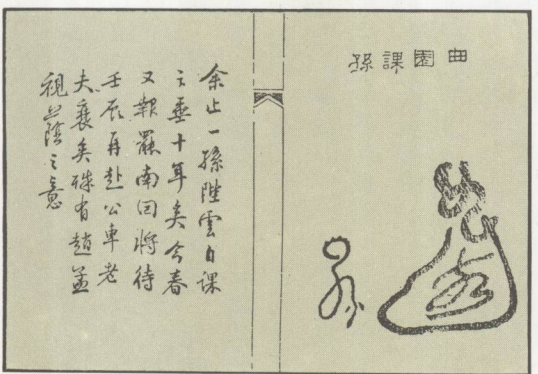 曲園課孫
余止一孫陛雲自課
之垂十年矣今春
又報罷南回將待
壬辰再赴公車老
夫衰矣殊有趙孟
視蔭之意